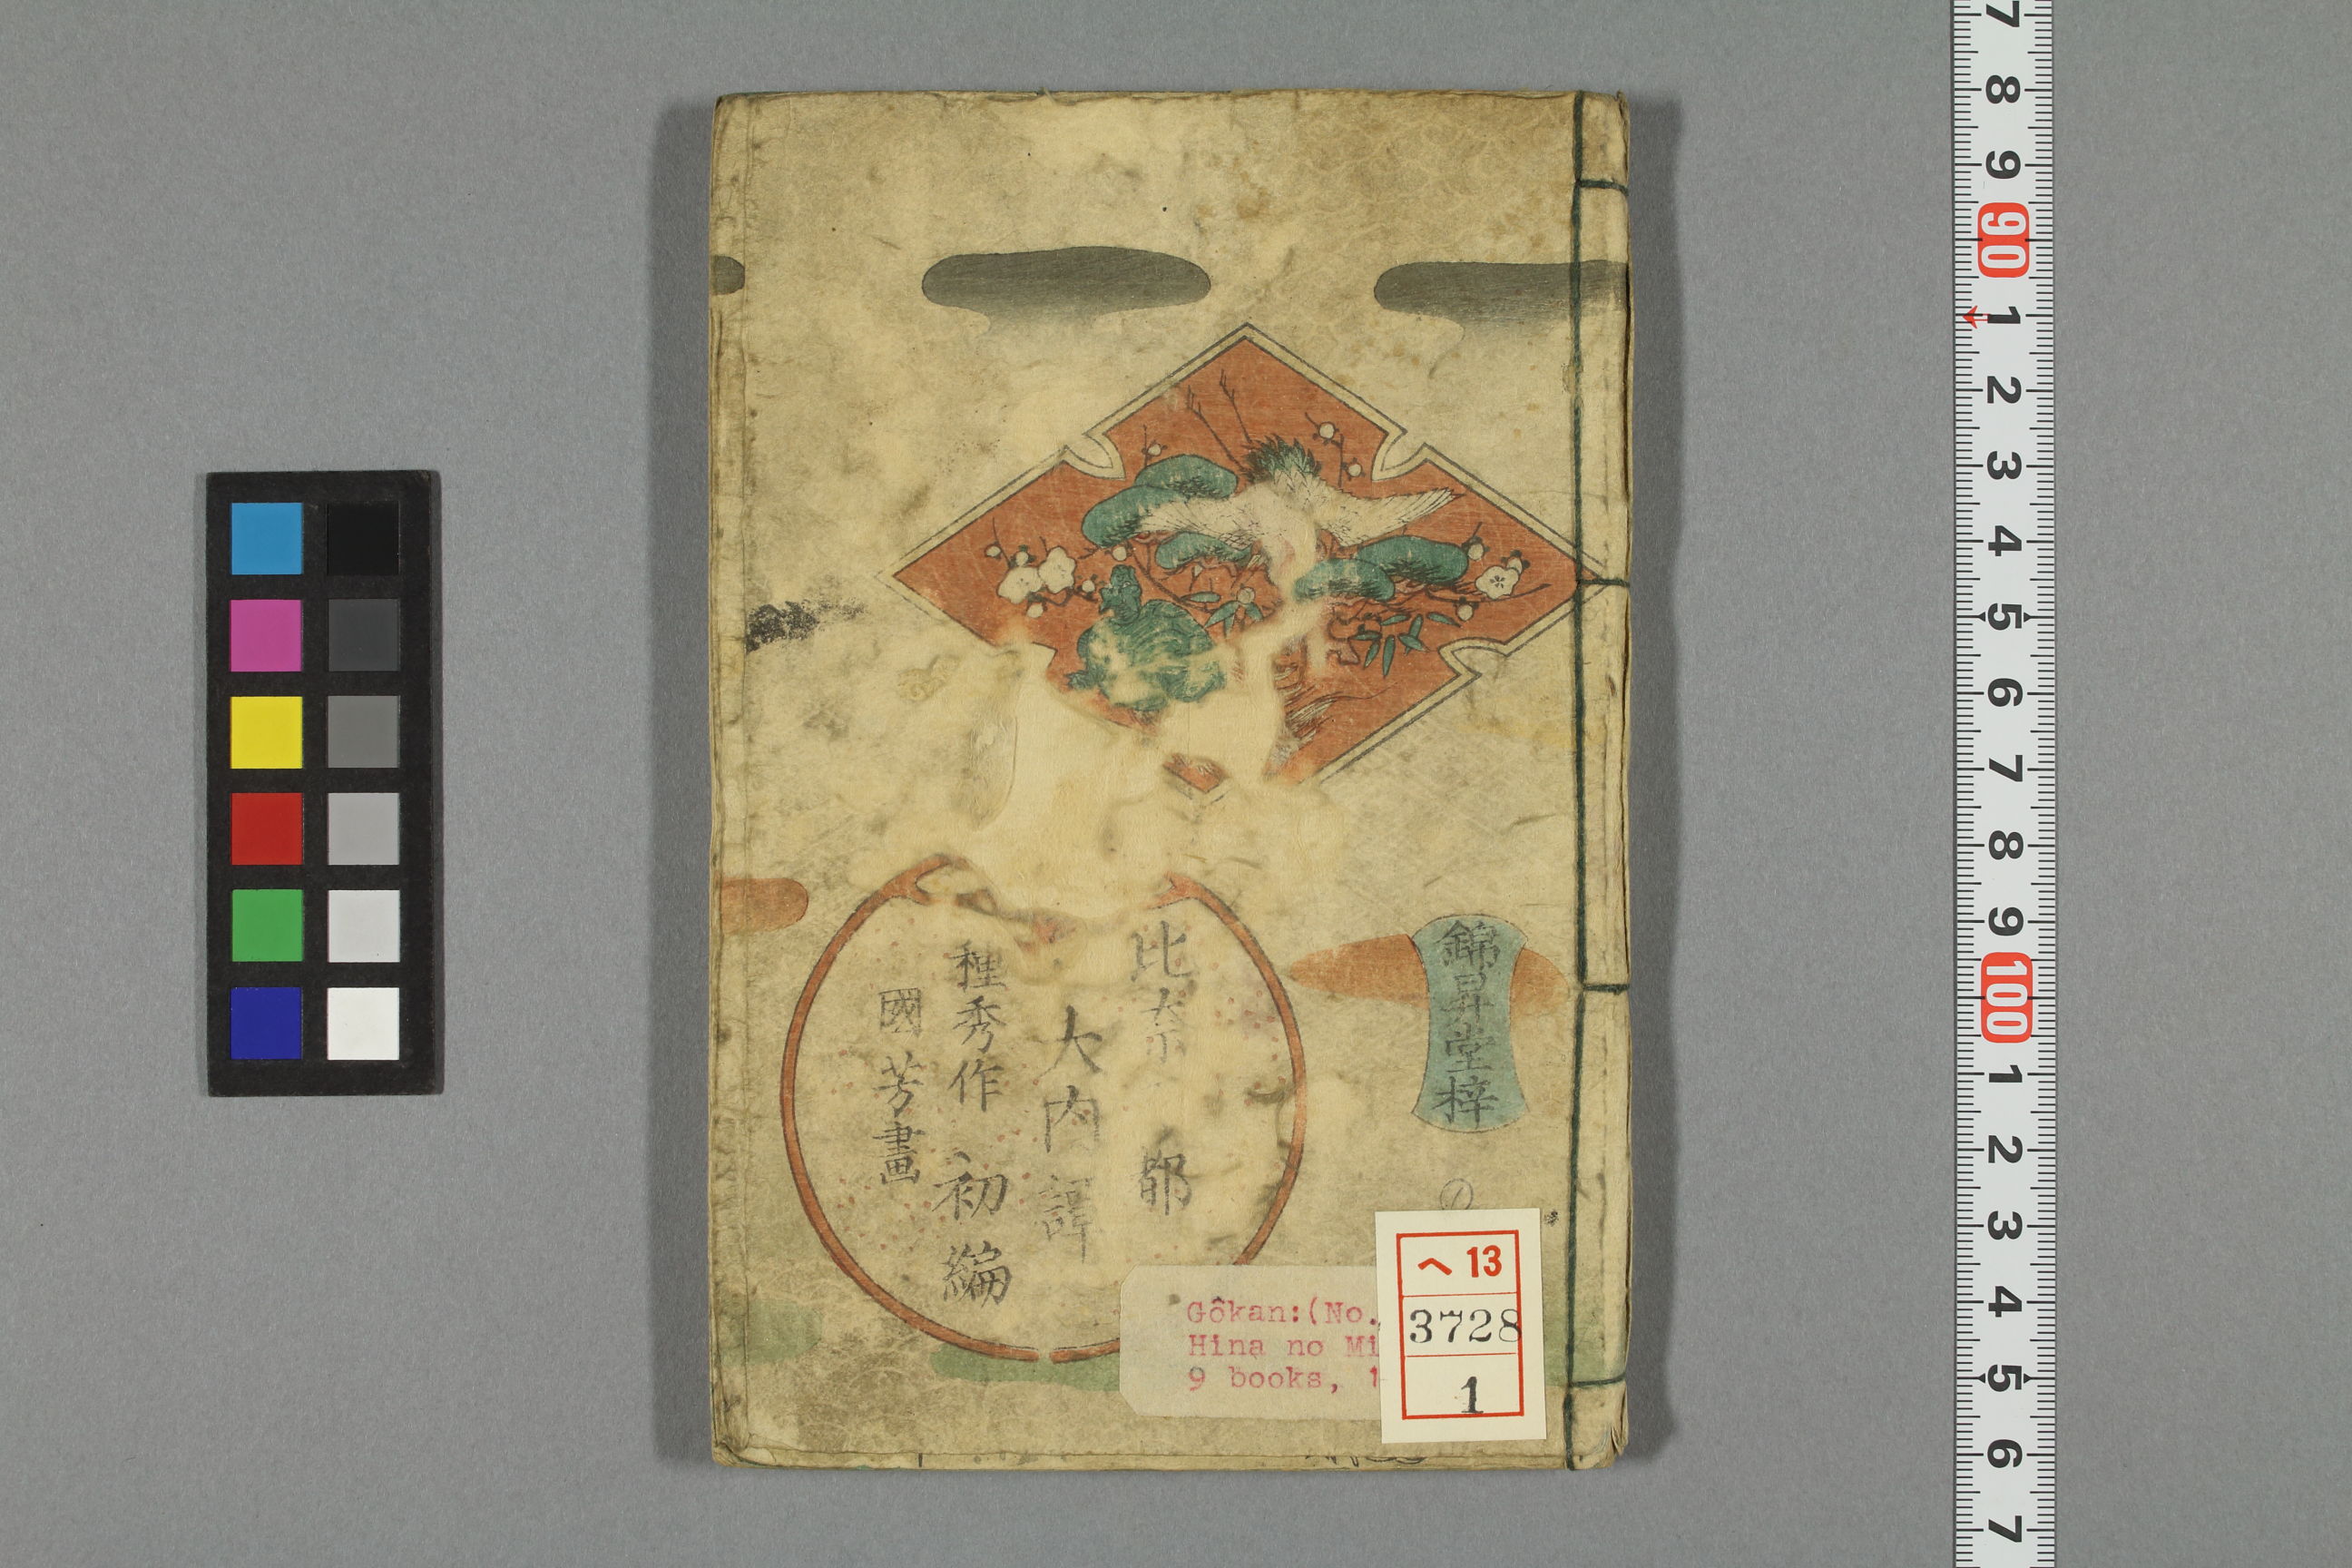 錦昇堂梓
比奈 都
大内譚
種秀作 初編
國芳畫
Gôkan:(No.
Hina no Mi
9 books, 1
へ 13
3728
1
7 8 9 90 1 2 3 4 5 6 7 8 9 100 1 2 3 4 5 6 7